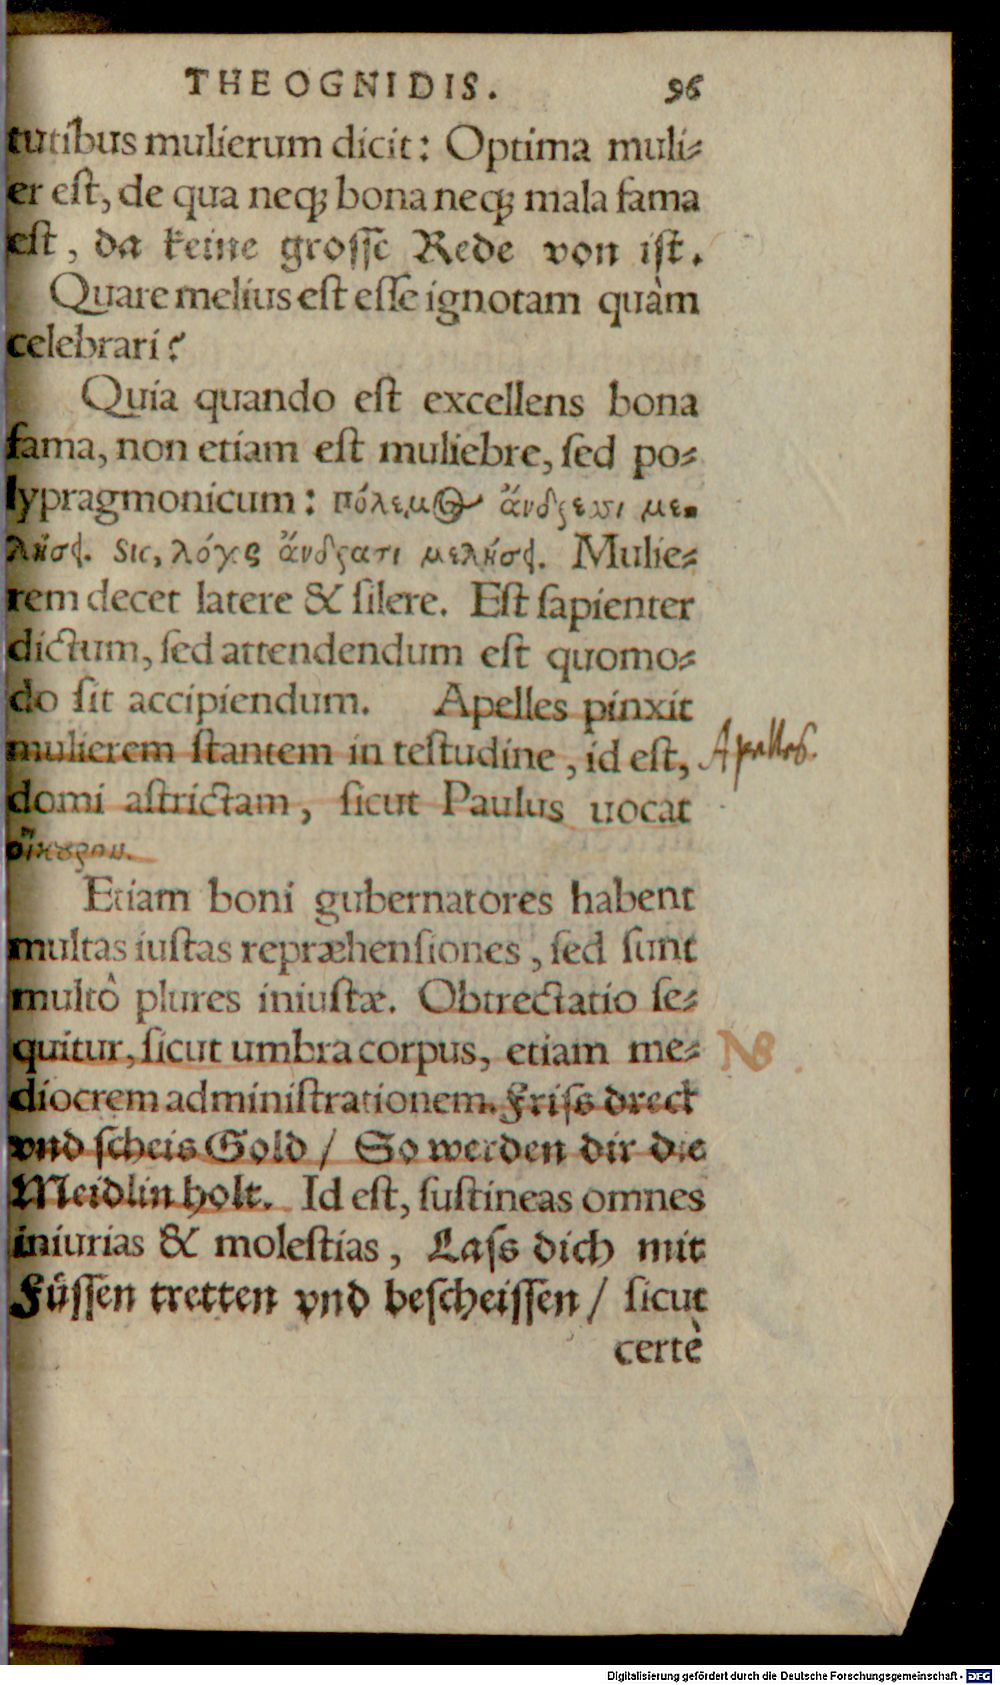 THEOGNIDIS. 96
tutibus mulierum dicit: Optima muli⸗
er est, de qua neq; bona neq; mala fama
est, da keine grosse Rede von ist.
Quare melius est esse ignotam quàm
celebrari?
Quia quando est excellens bona
fama, non etiam est muliebre, sed po⸗
lypragmonicum: πόλεμος ἄνδρεσσι με⸗
λήσει. Sic, λόγος ἄνδρασι μελήσει. Mulie⸗
rem decet latere & silere. Est sapienter
dictum, sed attendendum est quomo⸗
do sit accipiendum. Apelles pinxit
mulierem stantem in testudine, id est,
Apelles.
domi astrictam, sicut Paulus uocat
οἰκουρον.
Etiam boni gubernatores habent
multas iustas repræhensiones, sed sunt
multò plures iniustæ. Obtrectatio se⸗
quitur, sicut umbra corpus, etiam me⸗
NB
diocrem administrationem. Friss dreck
vnd scheis Gold / So werden dir die
Meidlin holt. Id est, sustineas omnes
iniurias & molestias, Lass dich mit
Füssen tretten vnd bescheissen / sicut
certè
Digitalisierung gefördert durch die Deutsche Forschungsgemeinschaft - DFG